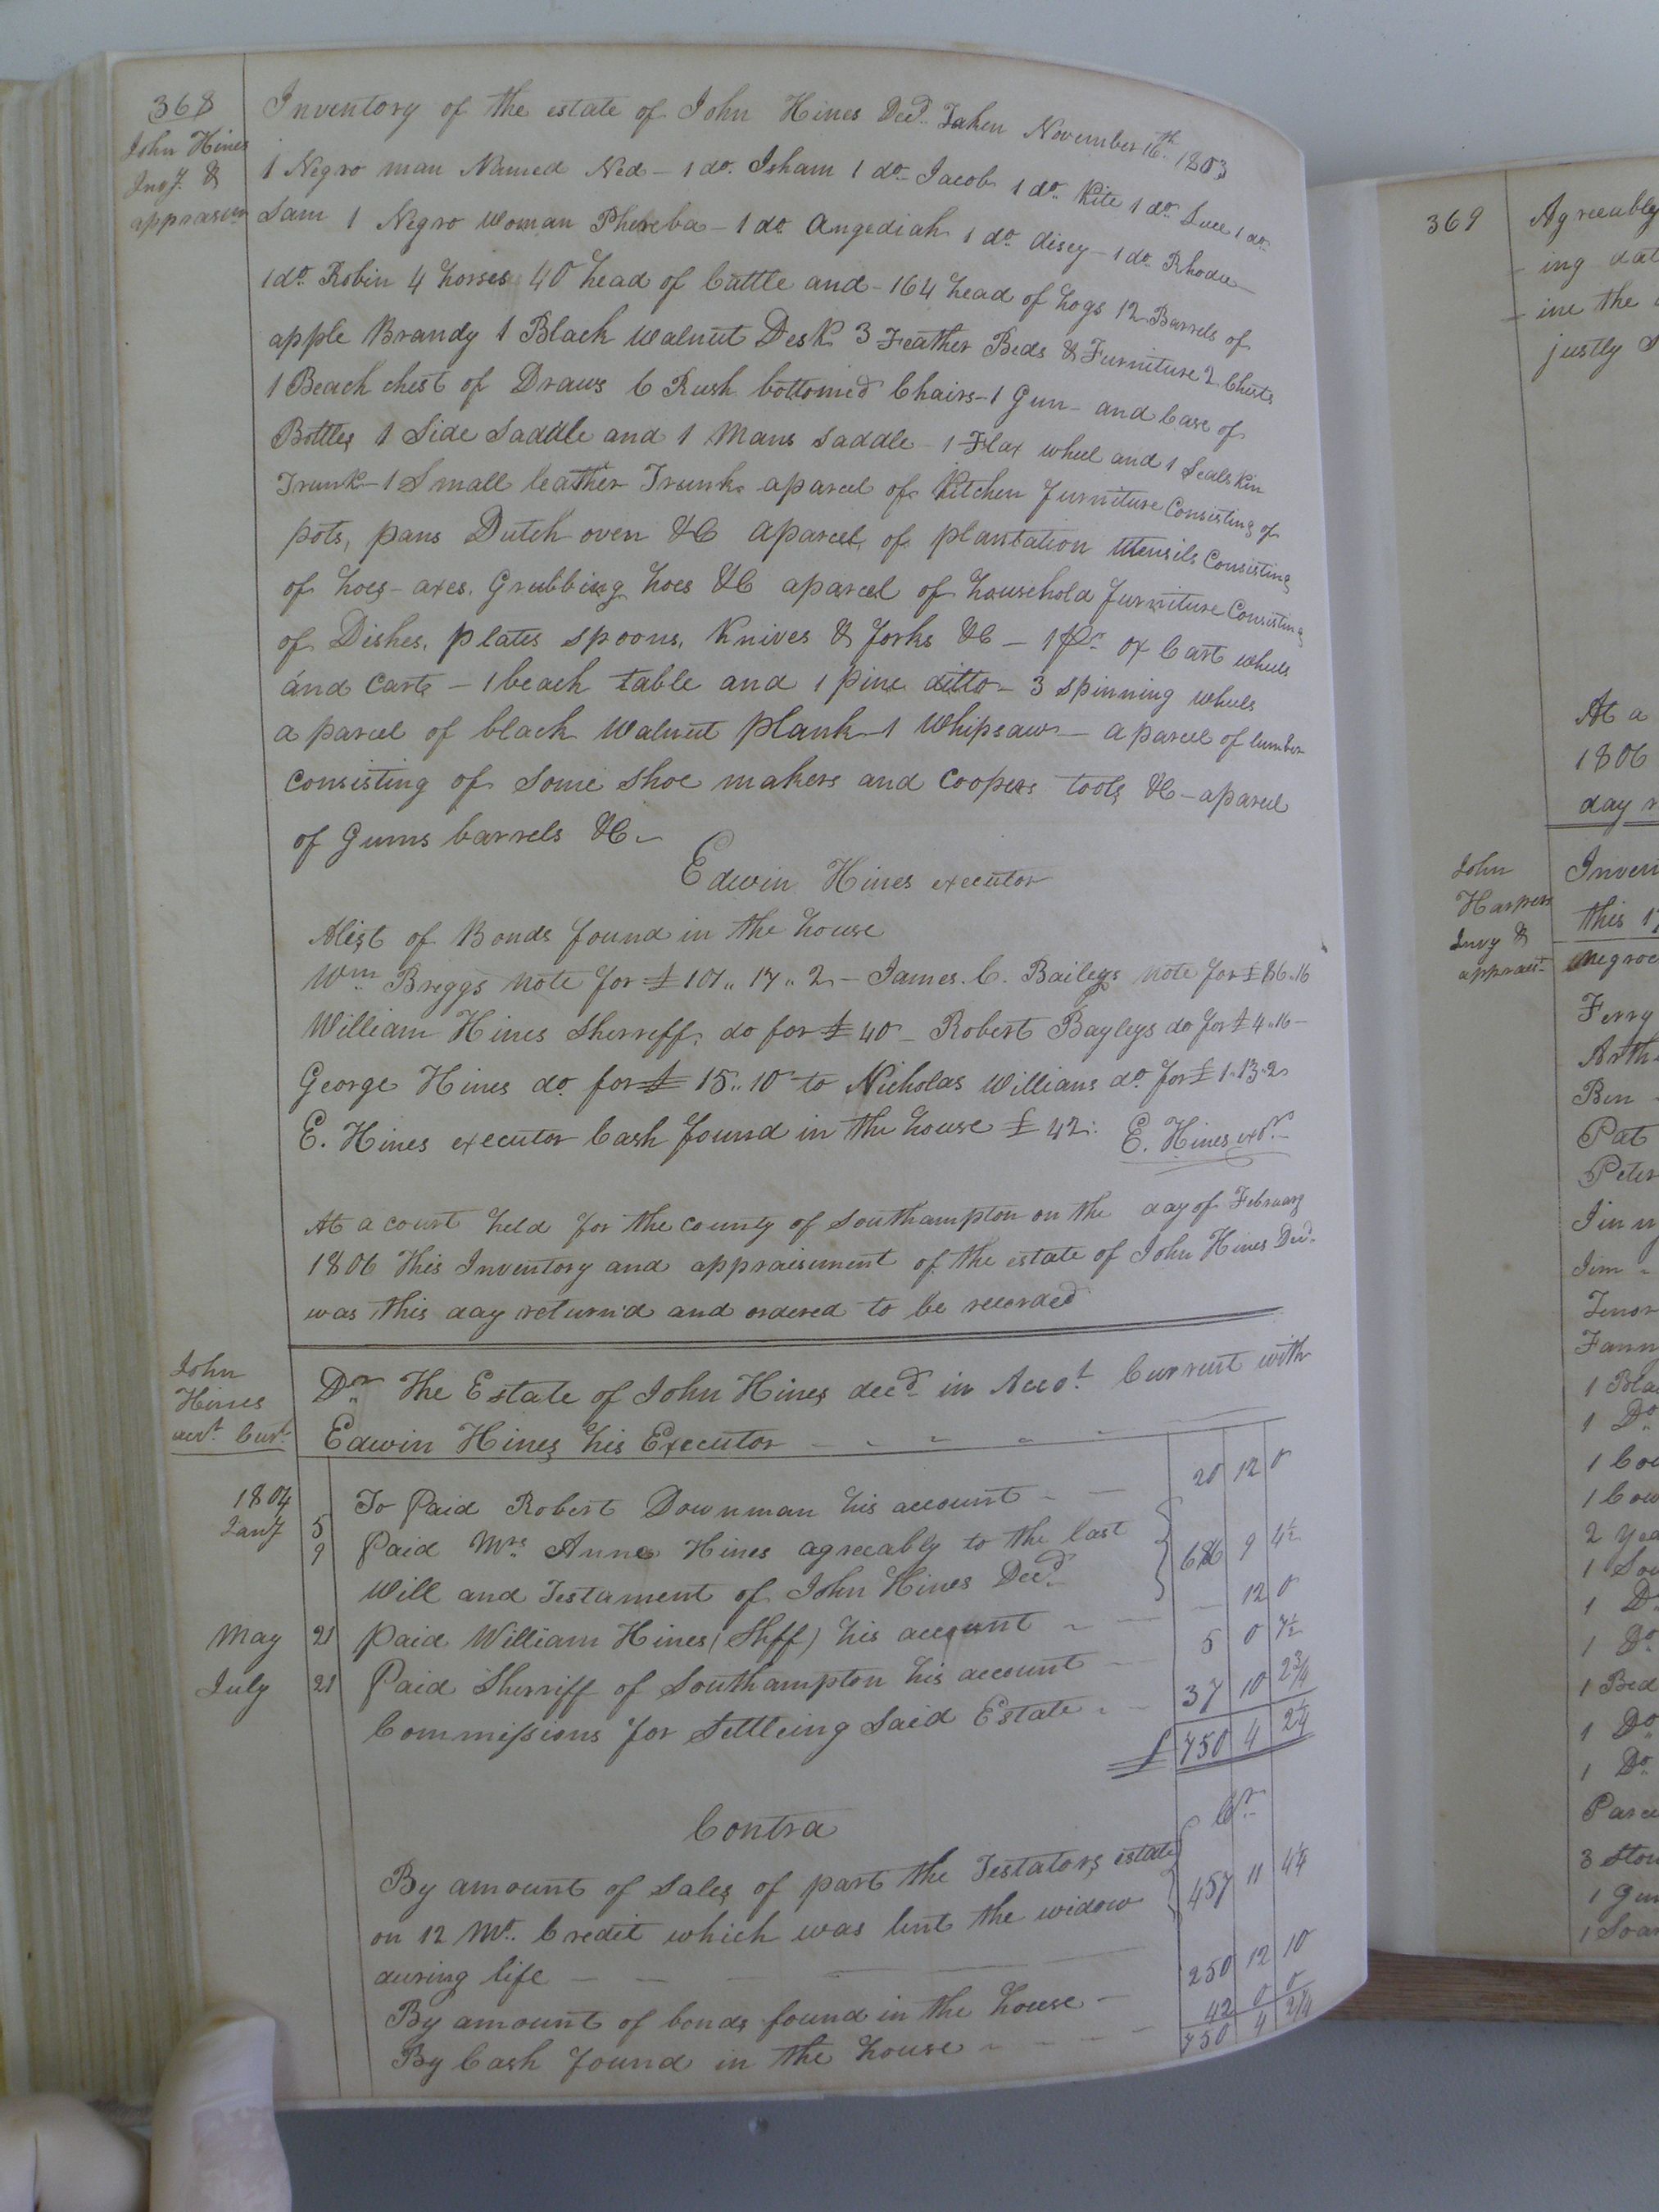 368
John Hines
Invy. &
appraism
Inventory of the estate of John Hines Decd. Taken November 16th. 1803
1 Negro man Named Ned – 1 do. Isham 1 do Jacob 1 do. Kite 1 do. Luce 1 do
Sam 1 Negro woman Phereba – 1 do Angediah 1 do Aisey – 1 do. Rhoda –
1 do. Robin 4 horses 40 head of Cattle and – 164 head of hogs 12 Barrels of
apple Brandy 1 Black walnut Desk 3 Feather Beds & Furniture 2 Chests
1 Beach chest of Draws 6 Rush bottomed Chairs – 1 Gun – and Case of
Bottles 1 Side Saddle and 1 Mans Saddle – 1 Flax wheel and 1 Sealskin
Trunk – 1 Small leather Trunk aparcel of Kitchen furniture Consisting of
pots, pans Dutch oven &C aparcel of plantation Utensils Consisting
of hoes – axes. Grubbing hoes &C aparcel of household furniture Consisting
of Dishes, plates spoons, Knives & forks &C – 1 pr ox Cart wheels
and Cart – 1 beach table and 1 pine ditto – 3 spinning wheels
a parcel of black walnut plank – 1 Whipsaw – a parcel of lumber
Consisting of Some Shoe makers and Coopers tools &C – aparcel
of Gums barrels &C –
Edwin Hines executor
Alist of Bonds found in the house
Wm Briggs note for £ 101 .. 17 .. 2 – James. C. Baileys note for £ 86 .. 16
William Hines Sherriff, do for £ 40 – Robert Bayleys do for £ 4 .. 16 –
George Hines do. for £ 15 .. 10 to Nicholas Willians do. for £ 1 .. 13 .. 2
E. Hines executor Cash found in the house £ 42 : E. Hines exr.
At a court held for the county of Southampton on the day of February
1806 This Inventory and appraisement of the estate of John Hines Decd.
was this day return'd and ordered to be recorded
John
Hines
acct. Curt.
Dr. The Estate of John Hines decd. in Accot. Current with
Edwin Hines his Executor – – – – –
1804
Jany 5 To Paid Robert Downman his account – – 20 12 0
9 Paid Mrs. Anne Hines agreeably to the last
Will and Testament of John Hines Decd. 686 9 4½
May 21 paid William Hines (Shff) his account – – – 12 0
July 21 Paid Sherriff of Southampton his account – 5 0 7½
Commissions for Settleing Said Estate – – 37 10 2¾
£ 750 4 2¼
Contra Cr.
By amount of Sales of part the Testators estate
on 12 Mo. Credit which was lent the widow 457 11 4¼
during life – – – –
By amount of bonds found in the house – 250 12 10
By Cash found in the house – – – – 42 0 0
750 4 2¼
369
Agreeably
ing dat
ine the
justly
At a
1806
day
John
Harpers
Invy &
appraist
Inven
this 17
Negroe
Ferry
Arth
Ben
Pat
Peter
Jinny
Jim –
Fann
1 Bla
1 Do.
1 Cow
2 yea
1 Sow
1 Do
1 Do
1 Bed
1 Do
1 Do.
Parce
3 Ston
1 Gun